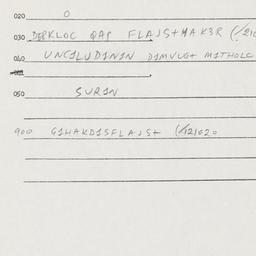 020 O
030 DERKLOC QAP FLAJS+MAK3R (/210
040 UNCILUDININ DIMVUG+ MITHOLC
050 SURIN
900 GIHAKDISFLAJS+ (/121020